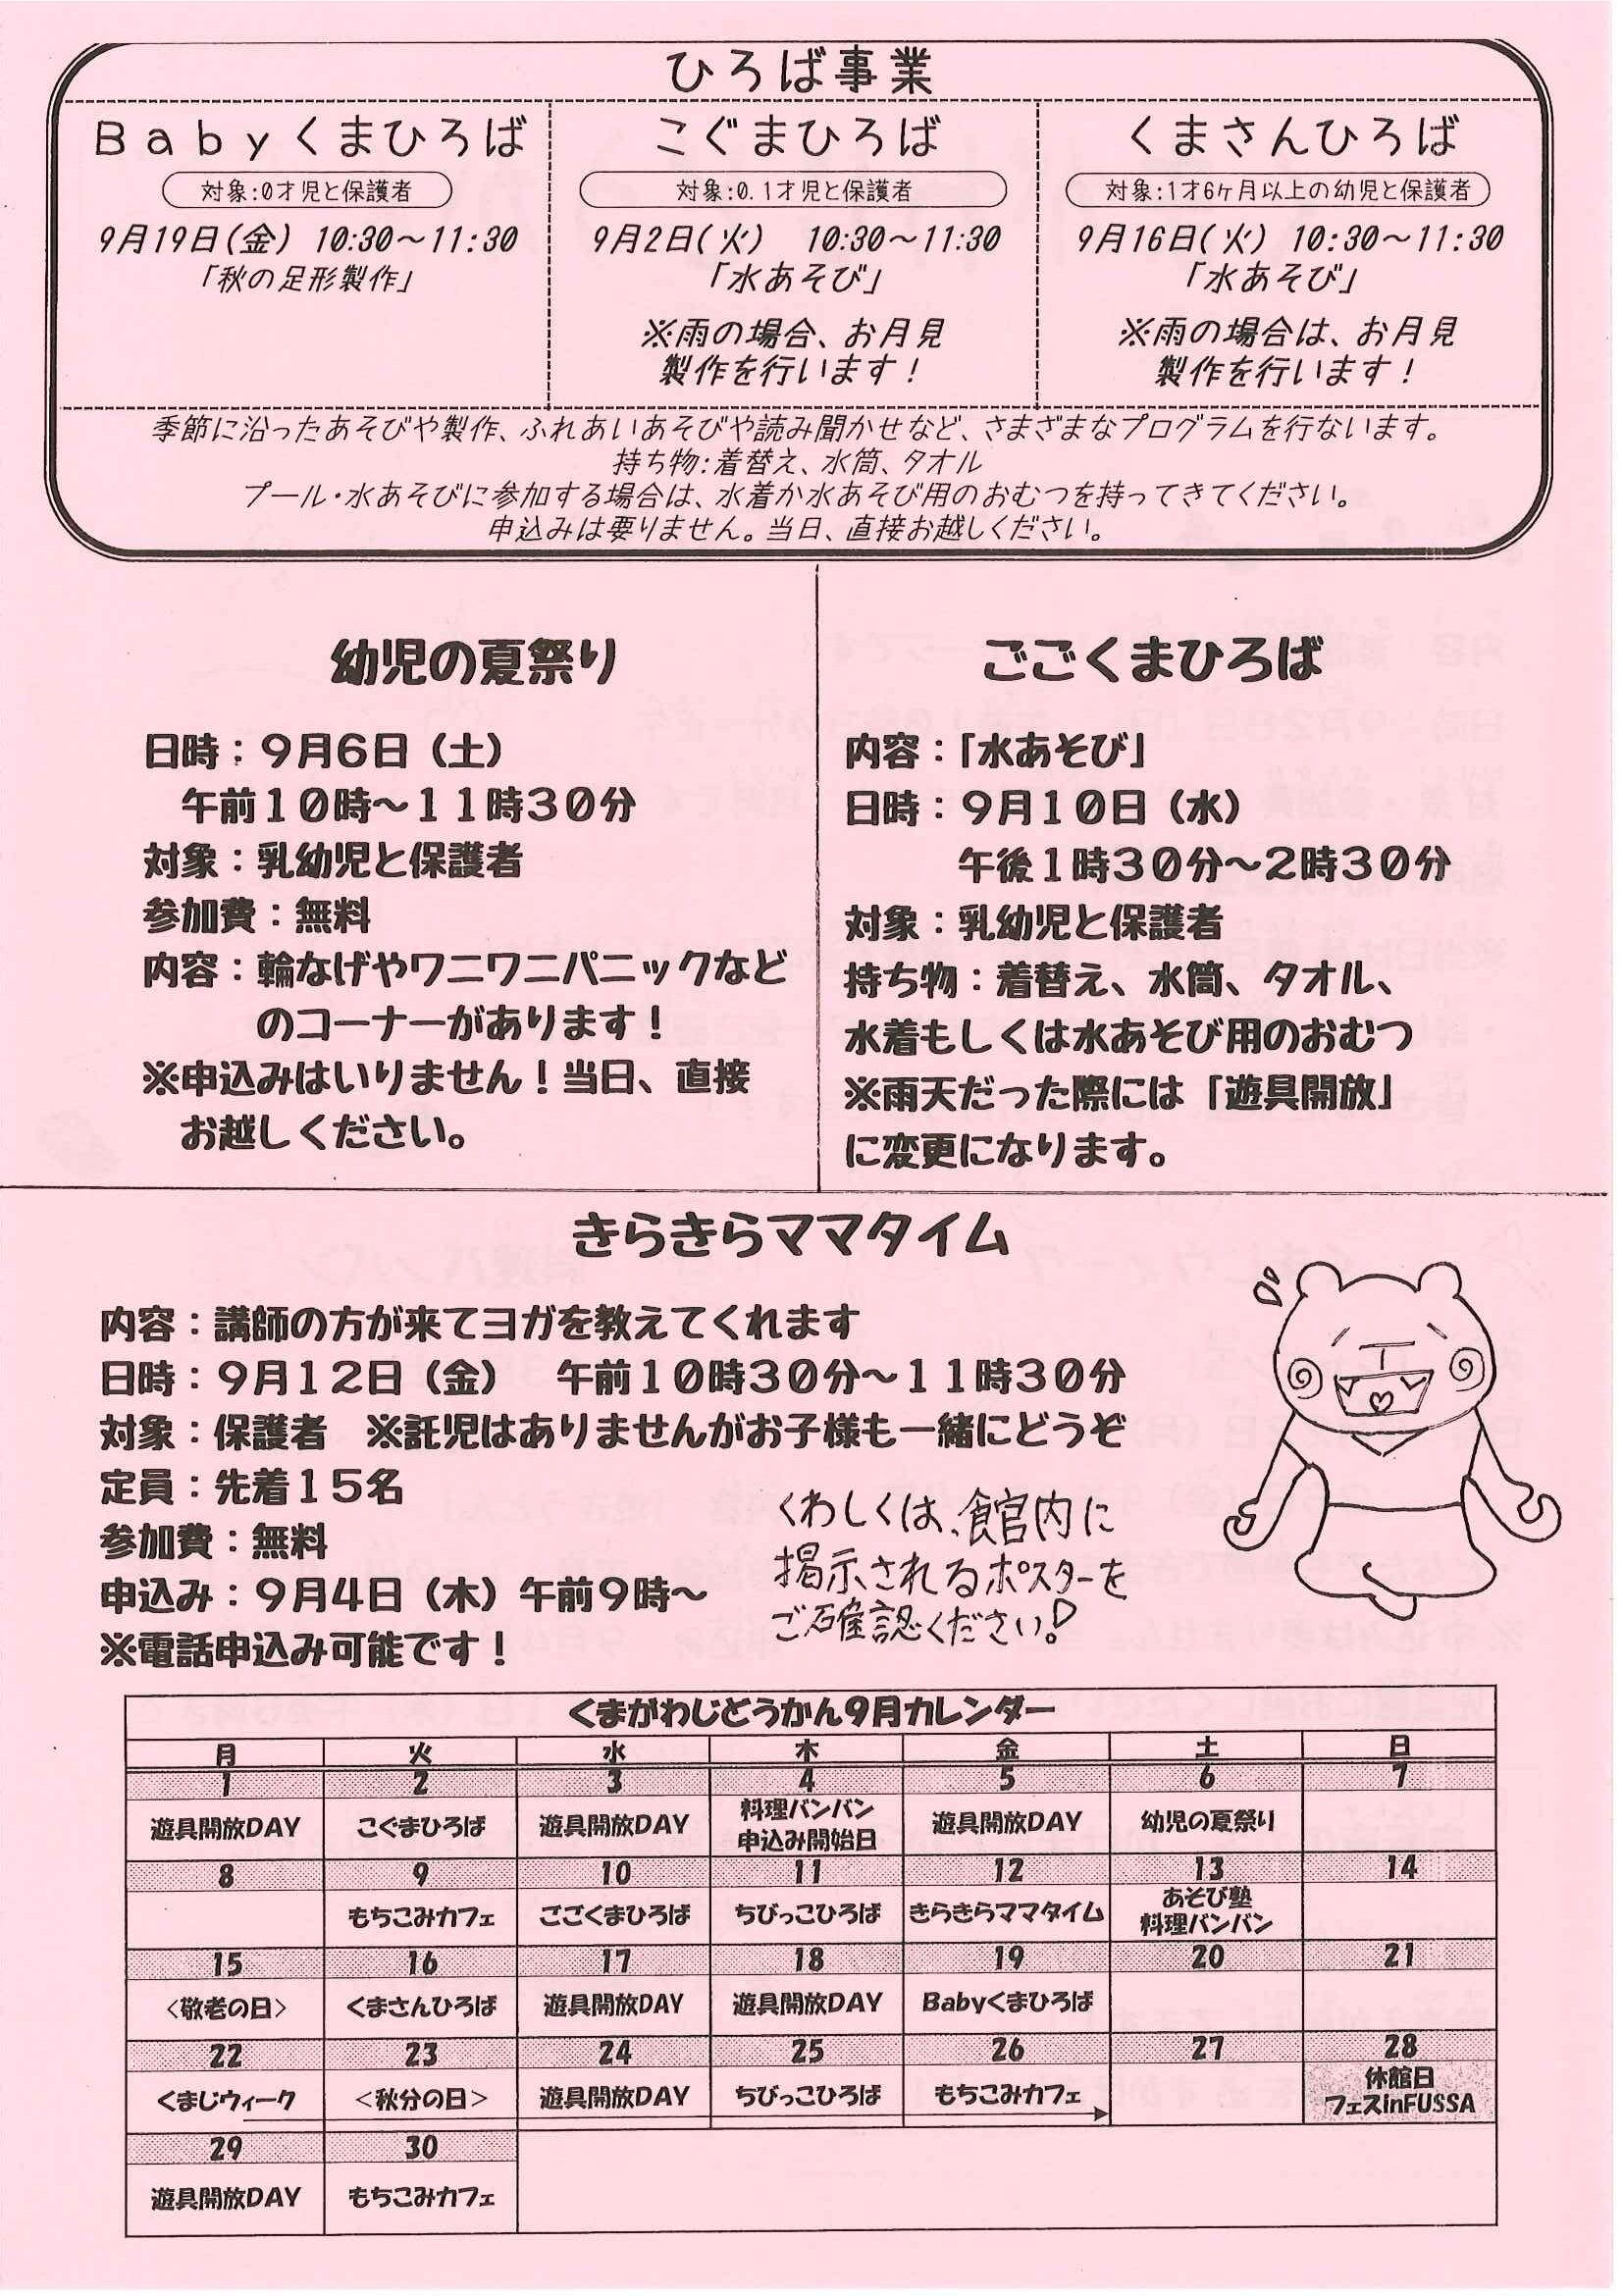 ひろば事業
Babyくまひろば
対象:0才児と保護者
9月19日(金) 10:30～11:30
「秋の足形製作」
こぐまひろば
対象:0.1才児と保護者
9月2日(火) 10:30～11:30
「水あそび」
※雨の場合、お月見
製作を行います！
くまさんひろば
対象:1才6ヶ月以上の幼児と保護者
9月16日(火) 10:30～11:30
「水あそび」
※雨の場合は、お月見
製作を行います！
季節に沿ったあそびや製作、ふれあいあそびや読み聞かせなど、さまざまなプログラムを行ないます。
持ち物:着替え、水筒、タオル
プール・水あそびに参加する場合は、水着か水あそび用のおむつを持ってきてください。
申込みは要りません。当日、直接お越しください。
幼児の夏祭り
日時：９月６日（土）
午前１０時～１１時３０分
対象：乳幼児と保護者
参加費：無料
内容：輪なげやワニワニパニックなど
のコーナーがあります！
※申込みはいりません！当日、直接
お越しください。
ごごくまひろば
内容：「水あそび」
日時：９月１０日（水）
午後１時３０分～２時３０分
対象：乳幼児と保護者
持ち物：着替え、水筒、タオル、
水着もしくは水あそび用のおむつ
※雨天だった際には「遊具開放」
に変更になります。
きらきらママタイム
内容：講師の方が来てヨガを教えてくれます
日時：９月１２日（金） 午前１０時３０分～１１時３０分
対象：保護者 ※託児はありませんがお子様も一緒にどうぞ
定員：先着１５名
参加費：無料
申込み：９月４日（木）午前９時～
※電話申込み可能です！
くわしくは、館内に
掲示されるポスターを
ご確認ください！
くまがわじどうかん９月カレンダー
月 火 水 木 金 土 日
1 2 3 4 5 6 7
遊具開放DAY こぐまひろば 遊具開放DAY 料理バンバン 遊具開放DAY 幼児の夏祭り
申込み開始日
8 9 10 11 12 13 14
もちこみカフェ ごごくまひろば ちびっこひろば きらきらママタイム あそび塾
料理バンバン
15 16 17 18 19 20 21
＜敬老の日＞ くまさんひろば 遊具開放DAY 遊具開放DAY Babyくまひろば
22 23 24 25 26 27 28
くまじウィーク ＜秋分の日＞ 遊具開放DAY ちびっこひろば もちこみカフェ 休館日
フェスinFUSSA
29 30
遊具開放DAY もちこみカフェ